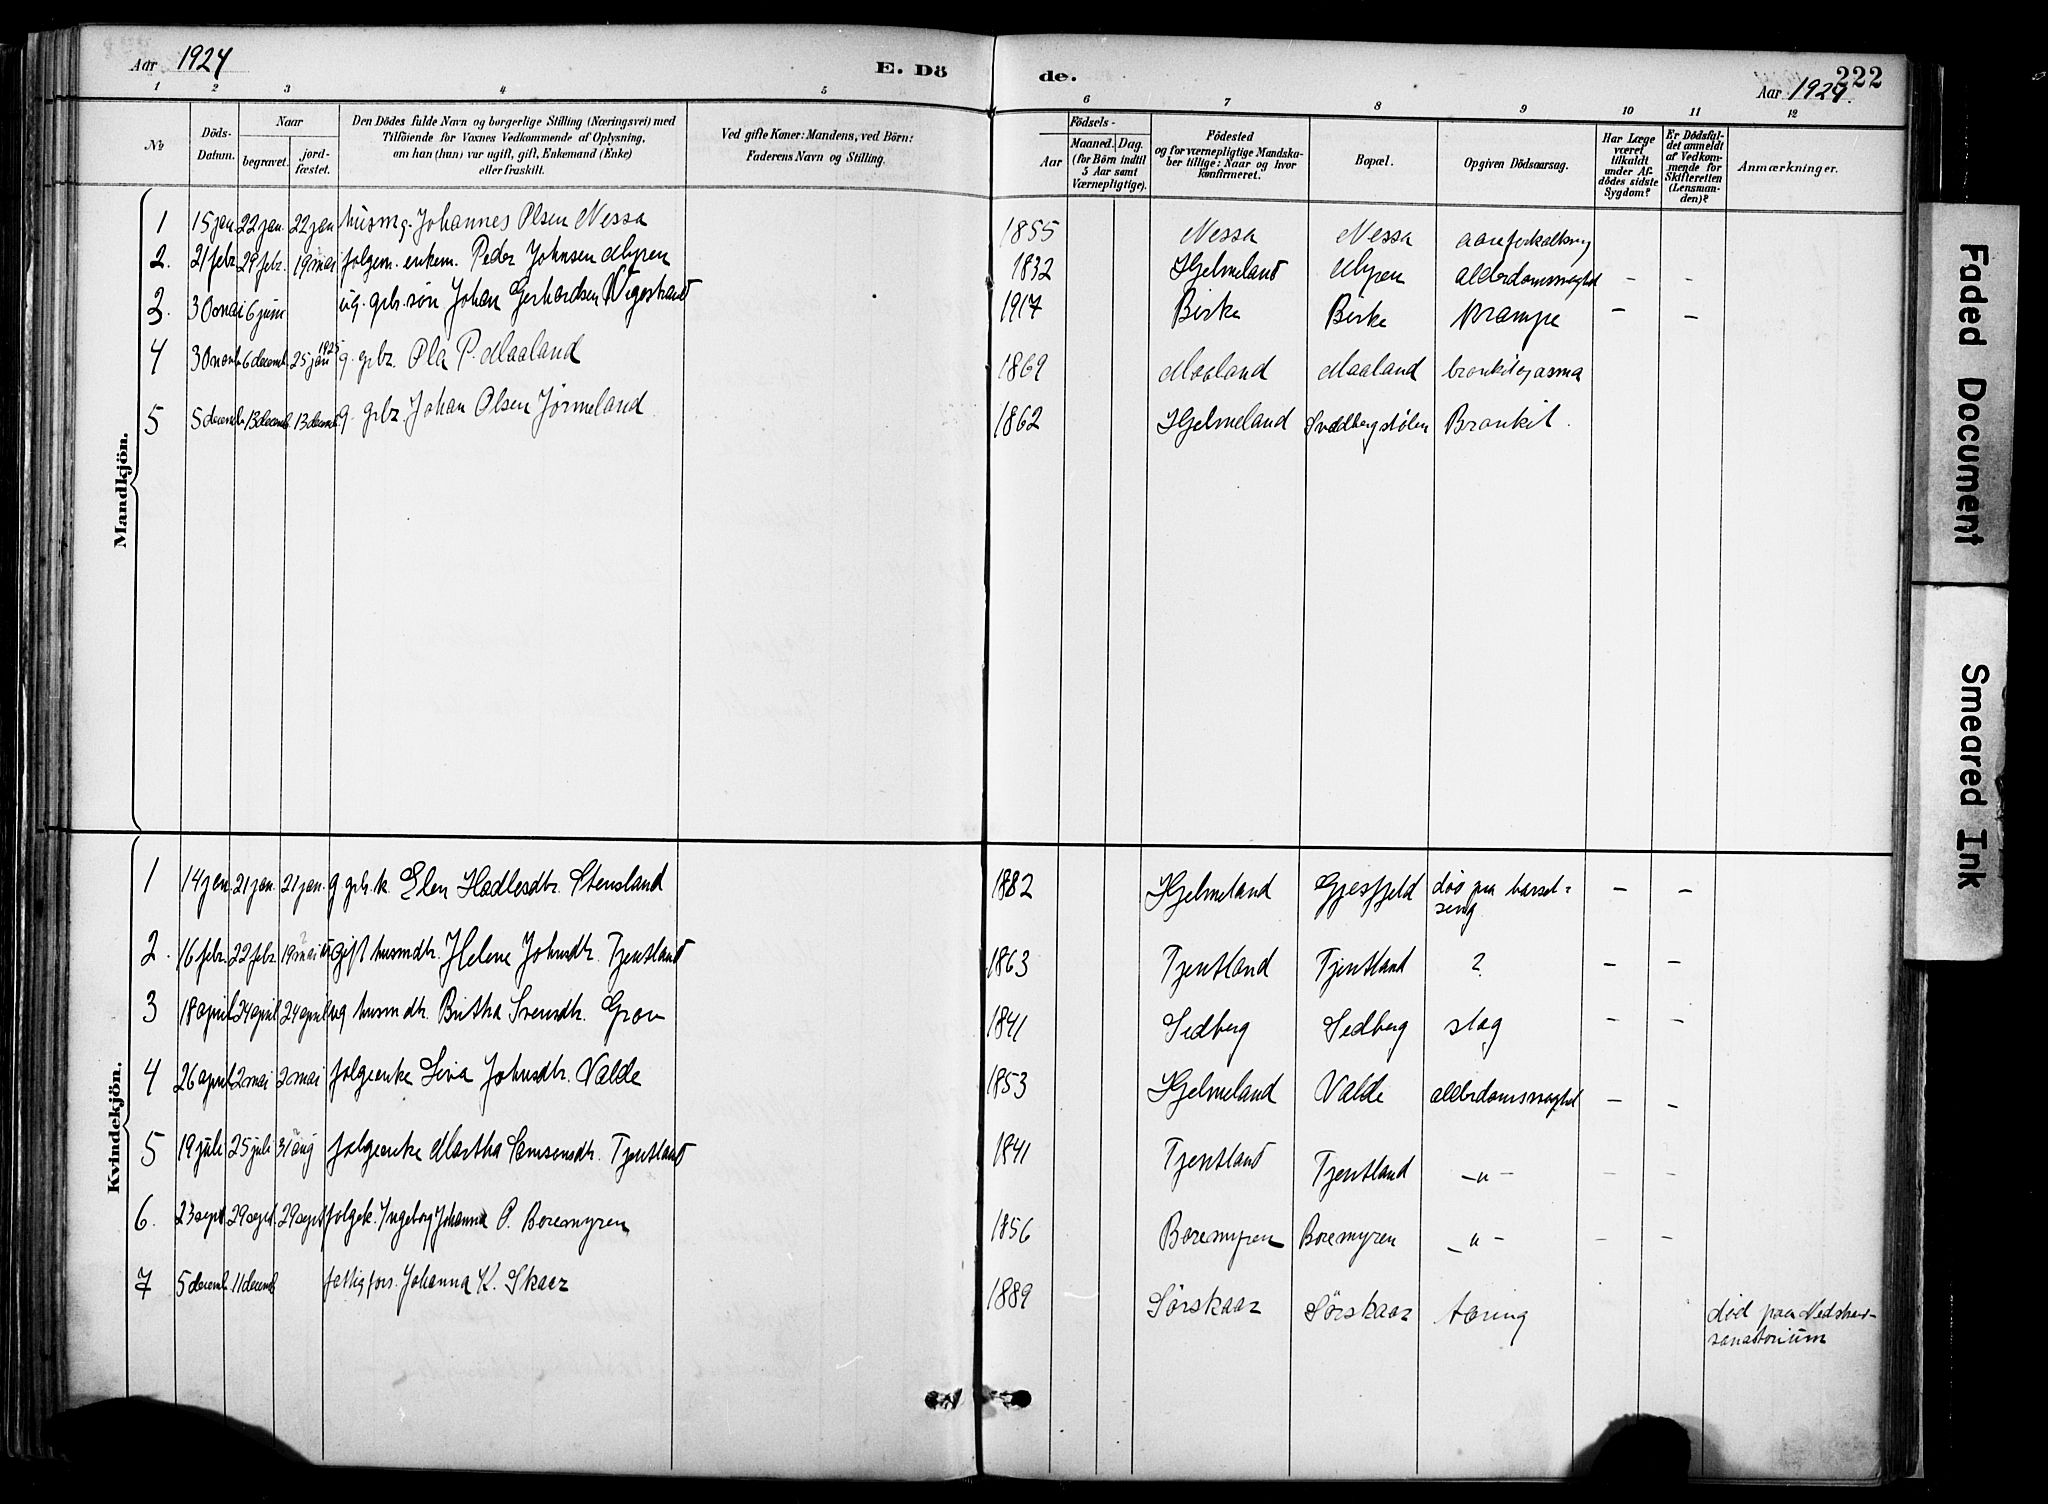 Aar 1924
E. Döde.
222
Aar 1924.
1 2 3 4 5 6 7 8 9 10 11 12
No
Döds-Datum.
Naar
begravet.
jord-fæstet.
Den Dödes fulde Navn og borgerlige Stilling (Næringsvei) med
Tilföiende for Voxnes Vedkommende af Oplysning,
om han (hun) var ugift, gift, Enkemand (Enke)
eller fraskilt.
Ved gifte Koner: Mandens, ved Börn:
Faderens Navn og Stilling.
Födsels-
Aar
Maaned. Dag.
(for Börn indtil
5 Aar samt
Værnepligtige).
Födested
og for værnepligtige Mandska-
ber tillige: Naar og hvor
konfirmeret.
Bopæl.
Opgiven Dödsaarsag.
Har Læge
været
tilkaldt
under Af-
dödes sidste
Sygdom?
Er Dödsfal-
det anmeldt
af Vedkom-
mende for
Skifteretten
(Lensman-
den)?
Anmærkninger.
Mandkjön.
1 15 jan. 22 jan. 22 jan husm g. Johannes Olsen Nessa 1855 Nessa Nessa aareforkalkning
2. 21 febr. 29 febr. 19 mai folgem. enkem. Peder Johnsen Myren 1832 Hjelmeland Myren alderdomssvaghet – –
3. 30 mai 6 juni ug. grb. søn Johan Gerhardsen Vigestrand 1917 Birke Birke Krampe – –
4 30 novb. 6 decemb. 25 jan 1925 g. grbr. Ola P. Maaland 1869 Maaland Maaland bronkit og asma
5 5 decemb. 13 decemb. 13 decemb. g. grbr. Johan Olsen Jørmeland 1862 Hjelmeland Svadbergstølen Bronkit.
Kvindekjön.
1 14 jan. 21 jan. 21 jan. g grb. k. Elen Hadlesdtr. Stensland 1882 Hjelmeland Gjesfjeld døs paa barsel=
seng – –
2. 16 febr. 22 febr. 19 mai ugift husmdtr. Helene Johnsdtr. Tjentland 1863 Tjentland Tjentland ? – –
3 18 april 24 april 24 april ug husmdtr. Britha Svensdtr. Grov 1841 Sedberg Sedberg slag – –
4 26 april 2 mai 2 mai folgeenke Siva Johnsdtr. Valde 1853 Hjelmeland Valde alderdomssvaghet – –
5 19 juli 25 juli 31 aug folgeenke Martha Samsonsdtr. Tjentland 1841 Tjentland Tjentland –"– – –
6. 23 sept. 29 sept. 29 sept folgek. Ingeborg Johanna P. Boremyren 1856 Boremyren Boremyren –"– – –
7 5 decemb. 11 decemb fattigfors. Johanna K. Skaar 1889 Sørskaar Sørskaar tæring død paa Vedstrand-
sanatorium
Faded Document
Smeared Ink